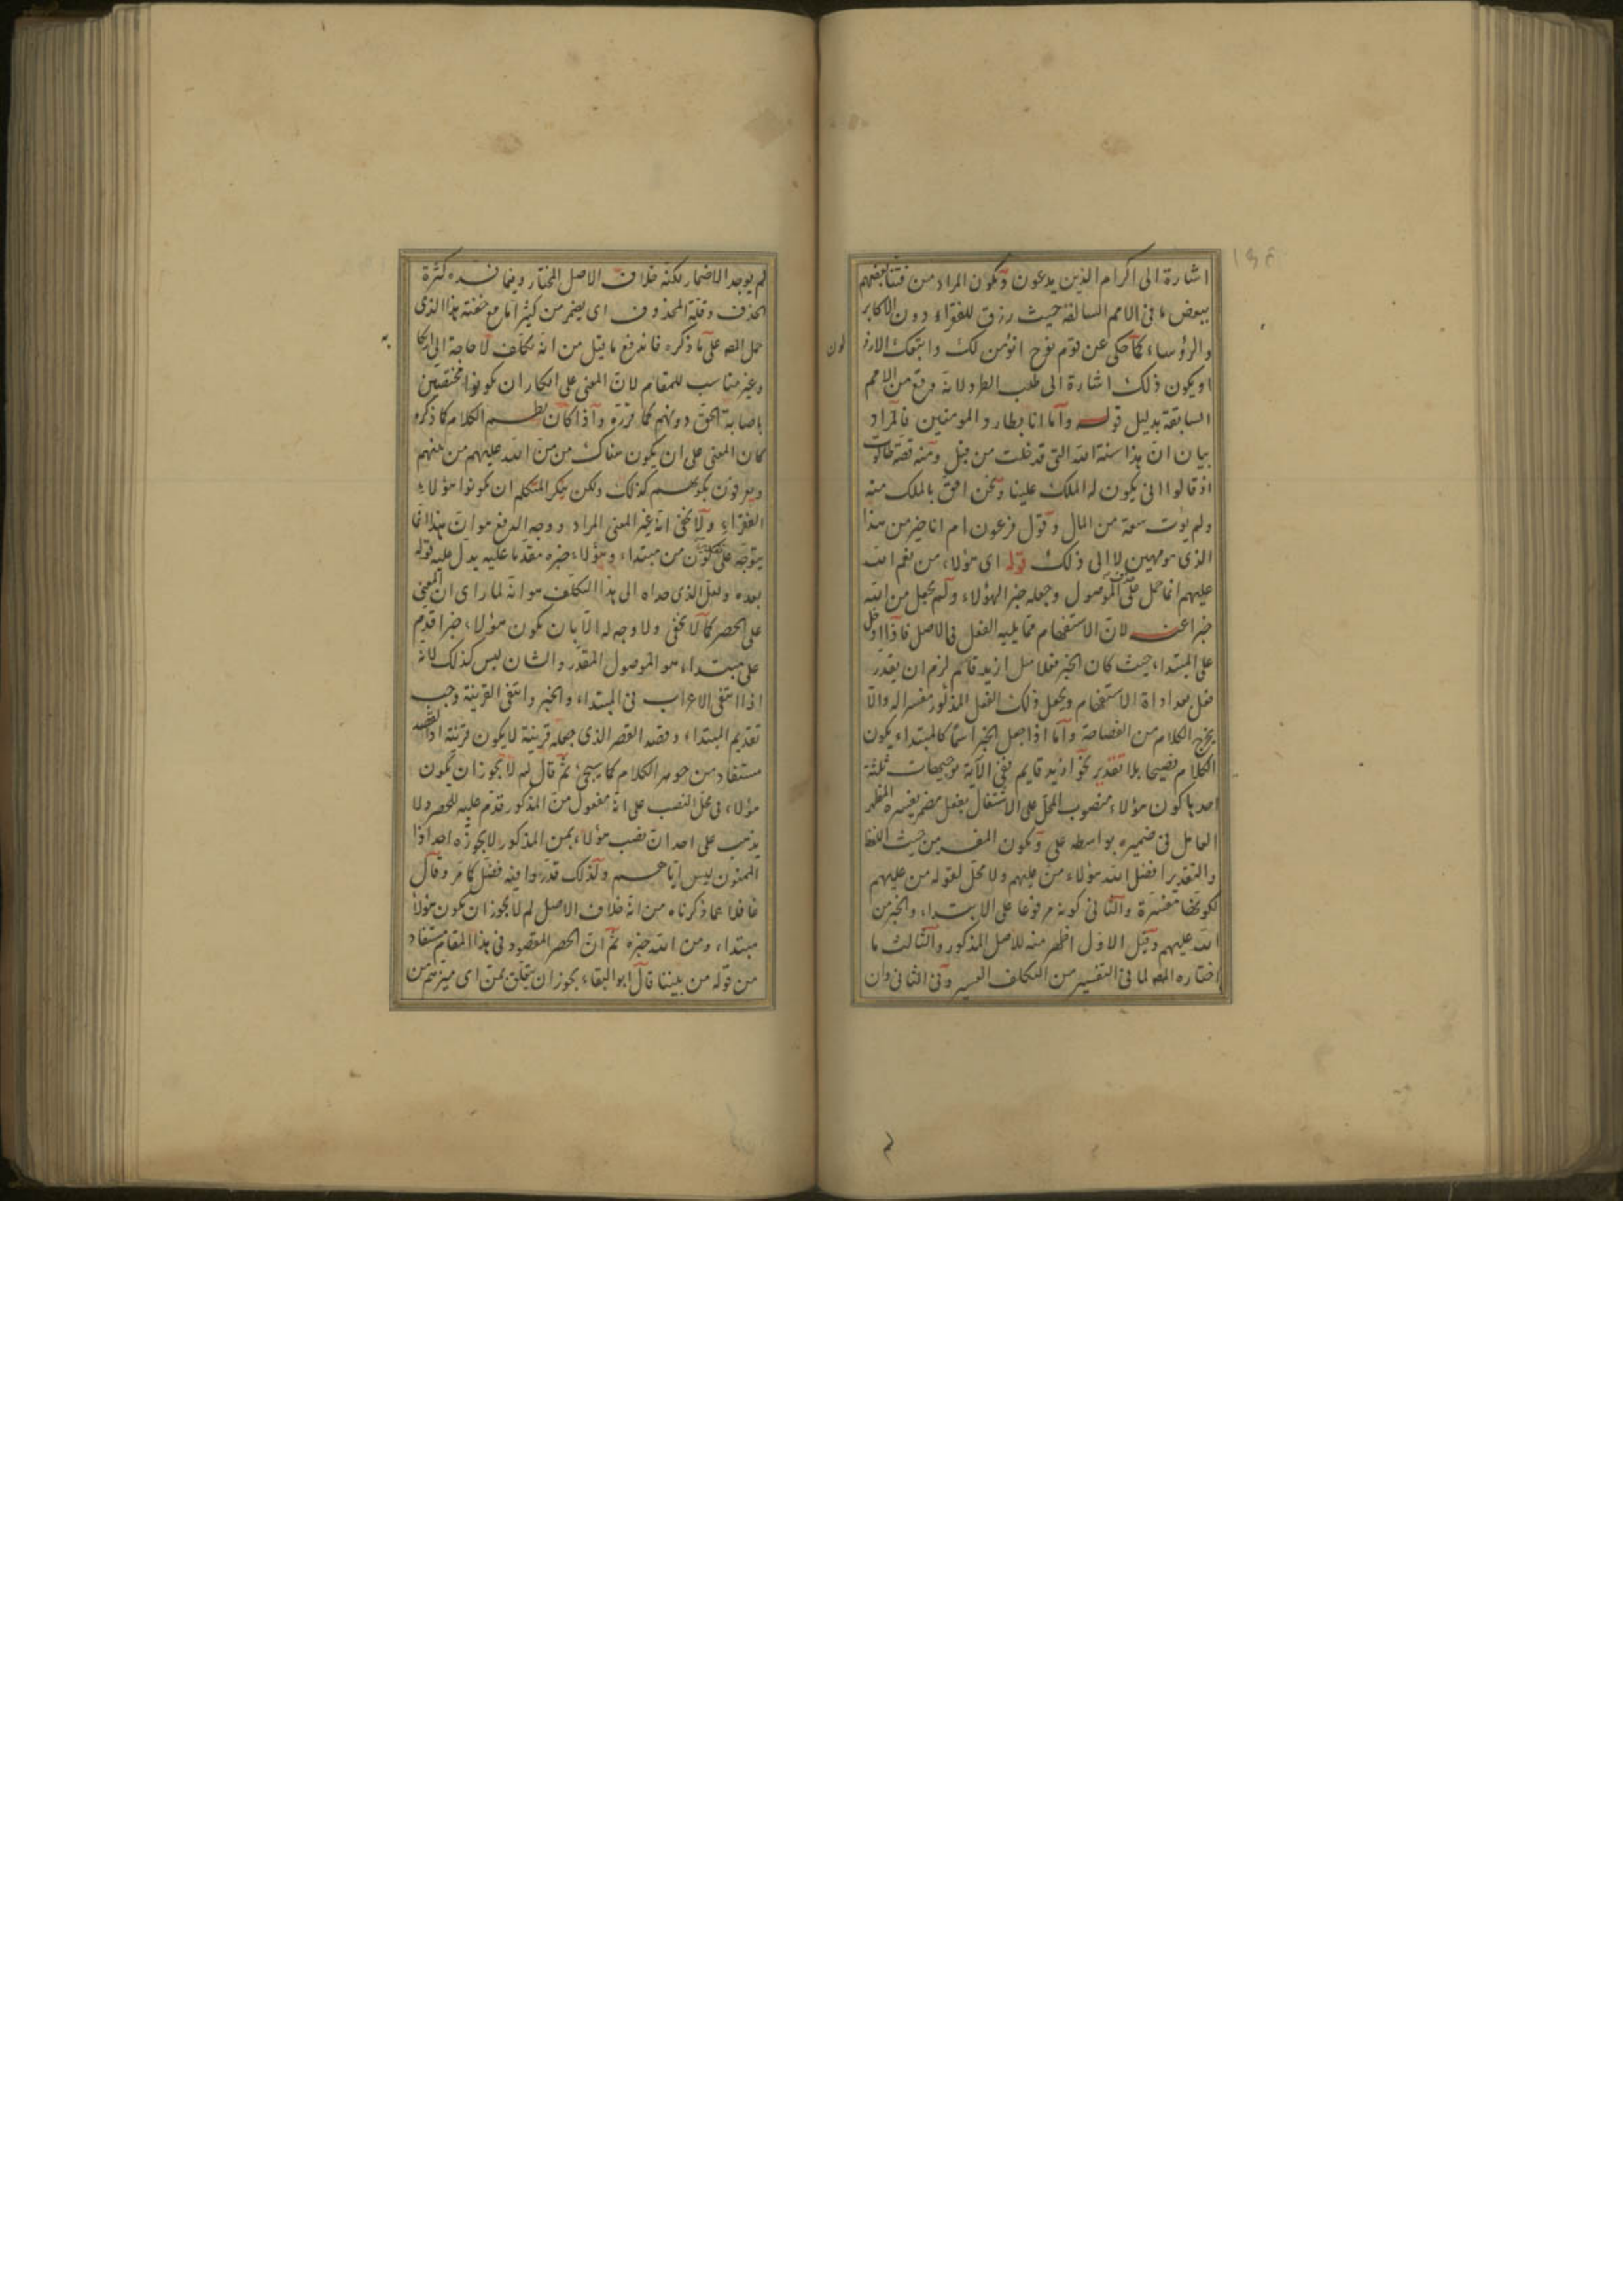 اشارة الى اكرام الذين يدعون ويكون المراد من فتنا بعضهم
ببعض ما فى الامم السالفة حيث رزق للفقراء دون الاكابر
والرؤساء كما حكى عن قوم نوح انؤمن لك واتبعك الارذلون
او يكون ذلك اشارة الى طلب الطرد لانه وقع من الامم
السابقة بدليل قوله وما انا بطارد المومنين فالمراد
بيان ان هذا سنة الله التى قد خلت من قبل ومنه قصة طالوت
اذ قالوا انى يكون له الملك علينا ونحن احق بالملك منه
ولم يؤت سعة من المال وقول فرعون ام انا خير من هذا
الذى هو مهين الى ذلك قوله اى هؤلاء من نعم الله
عليهم انما حمل على الموصول وجعله خبرا لهؤلاء ولم يجعل من الله
خبرا عنه لان الاستفهام مما يليه الفعل فى الاصل فاذا ادخل
على المبتداء حيث كان الخبر فعلا مثل ازيد قام لزم ان يقدر
فعل بعد اداة الاستفهام ويجعل ذلك الفعل المذكور مفسرا له والا
يخرج الكلام من الفصاحة واما اذا جعل الخبر اسما كالمبتداء يكون
الكلام فصيحا بلا تقدير نحو ازيد قايم ففى الآية توجيهات ثلثة
احدها كون هؤلاء منصوب المحل على الاشتغال بفعل مضمر يفسره المظهر
العامل فى ضميره بواسطه على ويكون المفسر من حيث اللفظ
والتقدير افضل الله هؤلاء من عليهم ولا محل لقوله من عليهم
لكونها مفسرة والثانى كونه مرفوعا على الابتداء والخبر من
الله عليهم وقيل الاول اظهر منه للاصل المذكور والثالث ما
اختاره المص لما فى التفسير من التكلف اليسير وفى الثانى وان
لم يوجد الاضمار لكنه خلاف الاصل المختار وفيما كثرة
الحذف وقلة المحذوف اى يضمر من كثيرا مع خفته هذا الذى
حمل المص على ما ذكره فاندفع ما قيل من انه تكلف لا حاجة الى ارتكابه
وغير مناسب للمقام لان المعنى على انكار ان يكونوا مختصين
باصابة الحق دونهم كما قرره واذا كان نظم الكلام كما ذكره
كان المعنى على ان يكون هناك من من الله عليهم من بينهم
ويعرفون بكونهم كذلك ولكن ينكر المتكلم ان يكونوا هؤلاء
الفقراء ولا يخفى انه غير المعنى المراد ووجه الدفع هو ان هذا انما
يتوجه على كون من مبتداء وهؤلاء خبره مقدما عليه يدل عليه قوله
بعده ولعل الذى حداه الى هذا التكلف هو انه لما راى ان المعنى
على الحصر كما لا يخفى ولا وجه له الا بان يكون هؤلاء خبرا قدم
على مبتداء هو الموصول المقدر والشان ليس كذلك لانه
اذا انتفى الاعراب فى المبتداء والخبر وانتفى القرينة وجب
تقديم المبتداء وقصد القصر الذى جعله قرينة لا يكون قرينة اذ القصد
مستفاد من جوهر الكلام كما سيجئ ثم قال لم لا يجوز ان يكون
هؤلاء فى محل النصب على انه مفعول من المذكور قدم عليه للحصر ولا
يذهب على احد ان نصب هؤلاء بمن المذكور لا يجوزه احد اذا
الممنون ليس اياهم ولذلك قدروا فيه فضل كما مر وقال
غافلا عما ذكرناه من انه خلاف الاصل لم لا يجوز ان يكون هؤلاء
مبتداء ومن الله خبره ثم ان الحصر المقصود فى هذا المقام مستفاد
من قوله من بيننا قال ابو البقاء يجوز ان يتعلق بمن اى ميزهم من